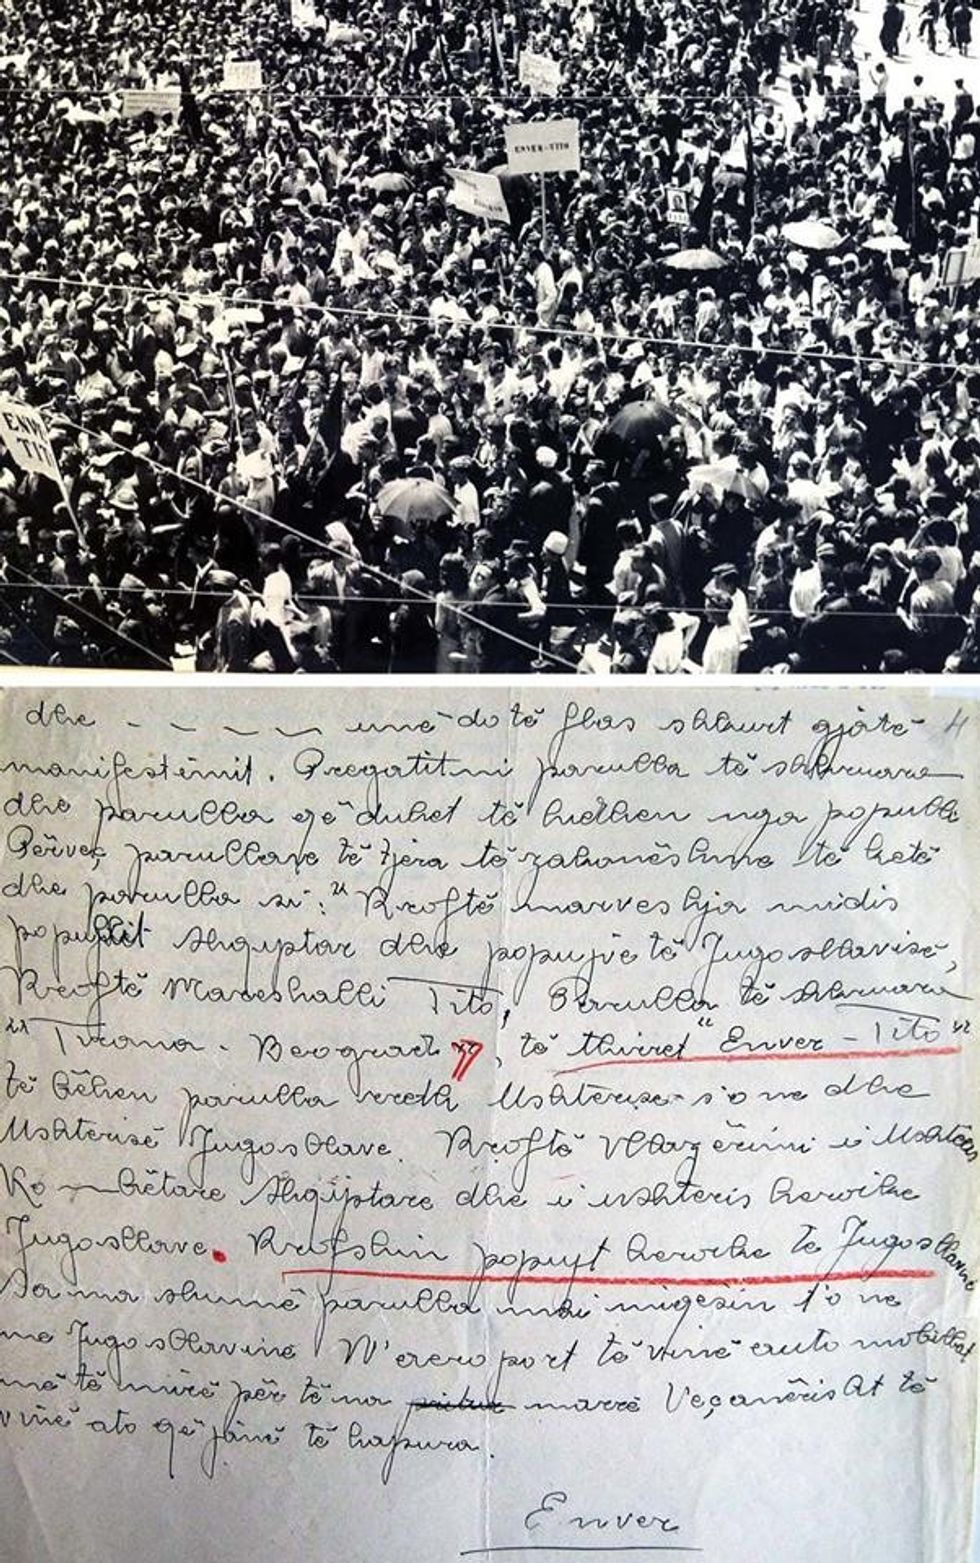 ENVER-TITO
ENV
TIT
4
dhe - - - - unë do të flas shkurt gjatë
manifestimit. Pregatitni parulla të shkruara
dhe parulla që duhet të hidhen nga populli
Përveç parullave të tjera të zakonëshme të ketë
dhe parulla si: "Rroftë marveshja midis
popullit shqyptar dhe popujve të Jugosllavisë,
Rroftë Mareshalli Tito, Parulla të shkruara
"Tirana - Beograd", të thirret "Enver - Tito"
të bëhen parulla rreth Ushtërise s'one dhe
Ushterisë Jugosllave. Rroftë Vllazërimi i Ushtëris
Ko-bëtare Shqyptare dhe i ushteris heroike
Jugosllave. Rrofshin popujt heroike te Jugosllavisë
Sa ma shumë parulla mbi miqesin t'one
me Jugosllavinë N'aeroport të vinë automobilat
më të mirë për të na marrë Veçanërisht të
vinë ato që janë të hapura.
Enver